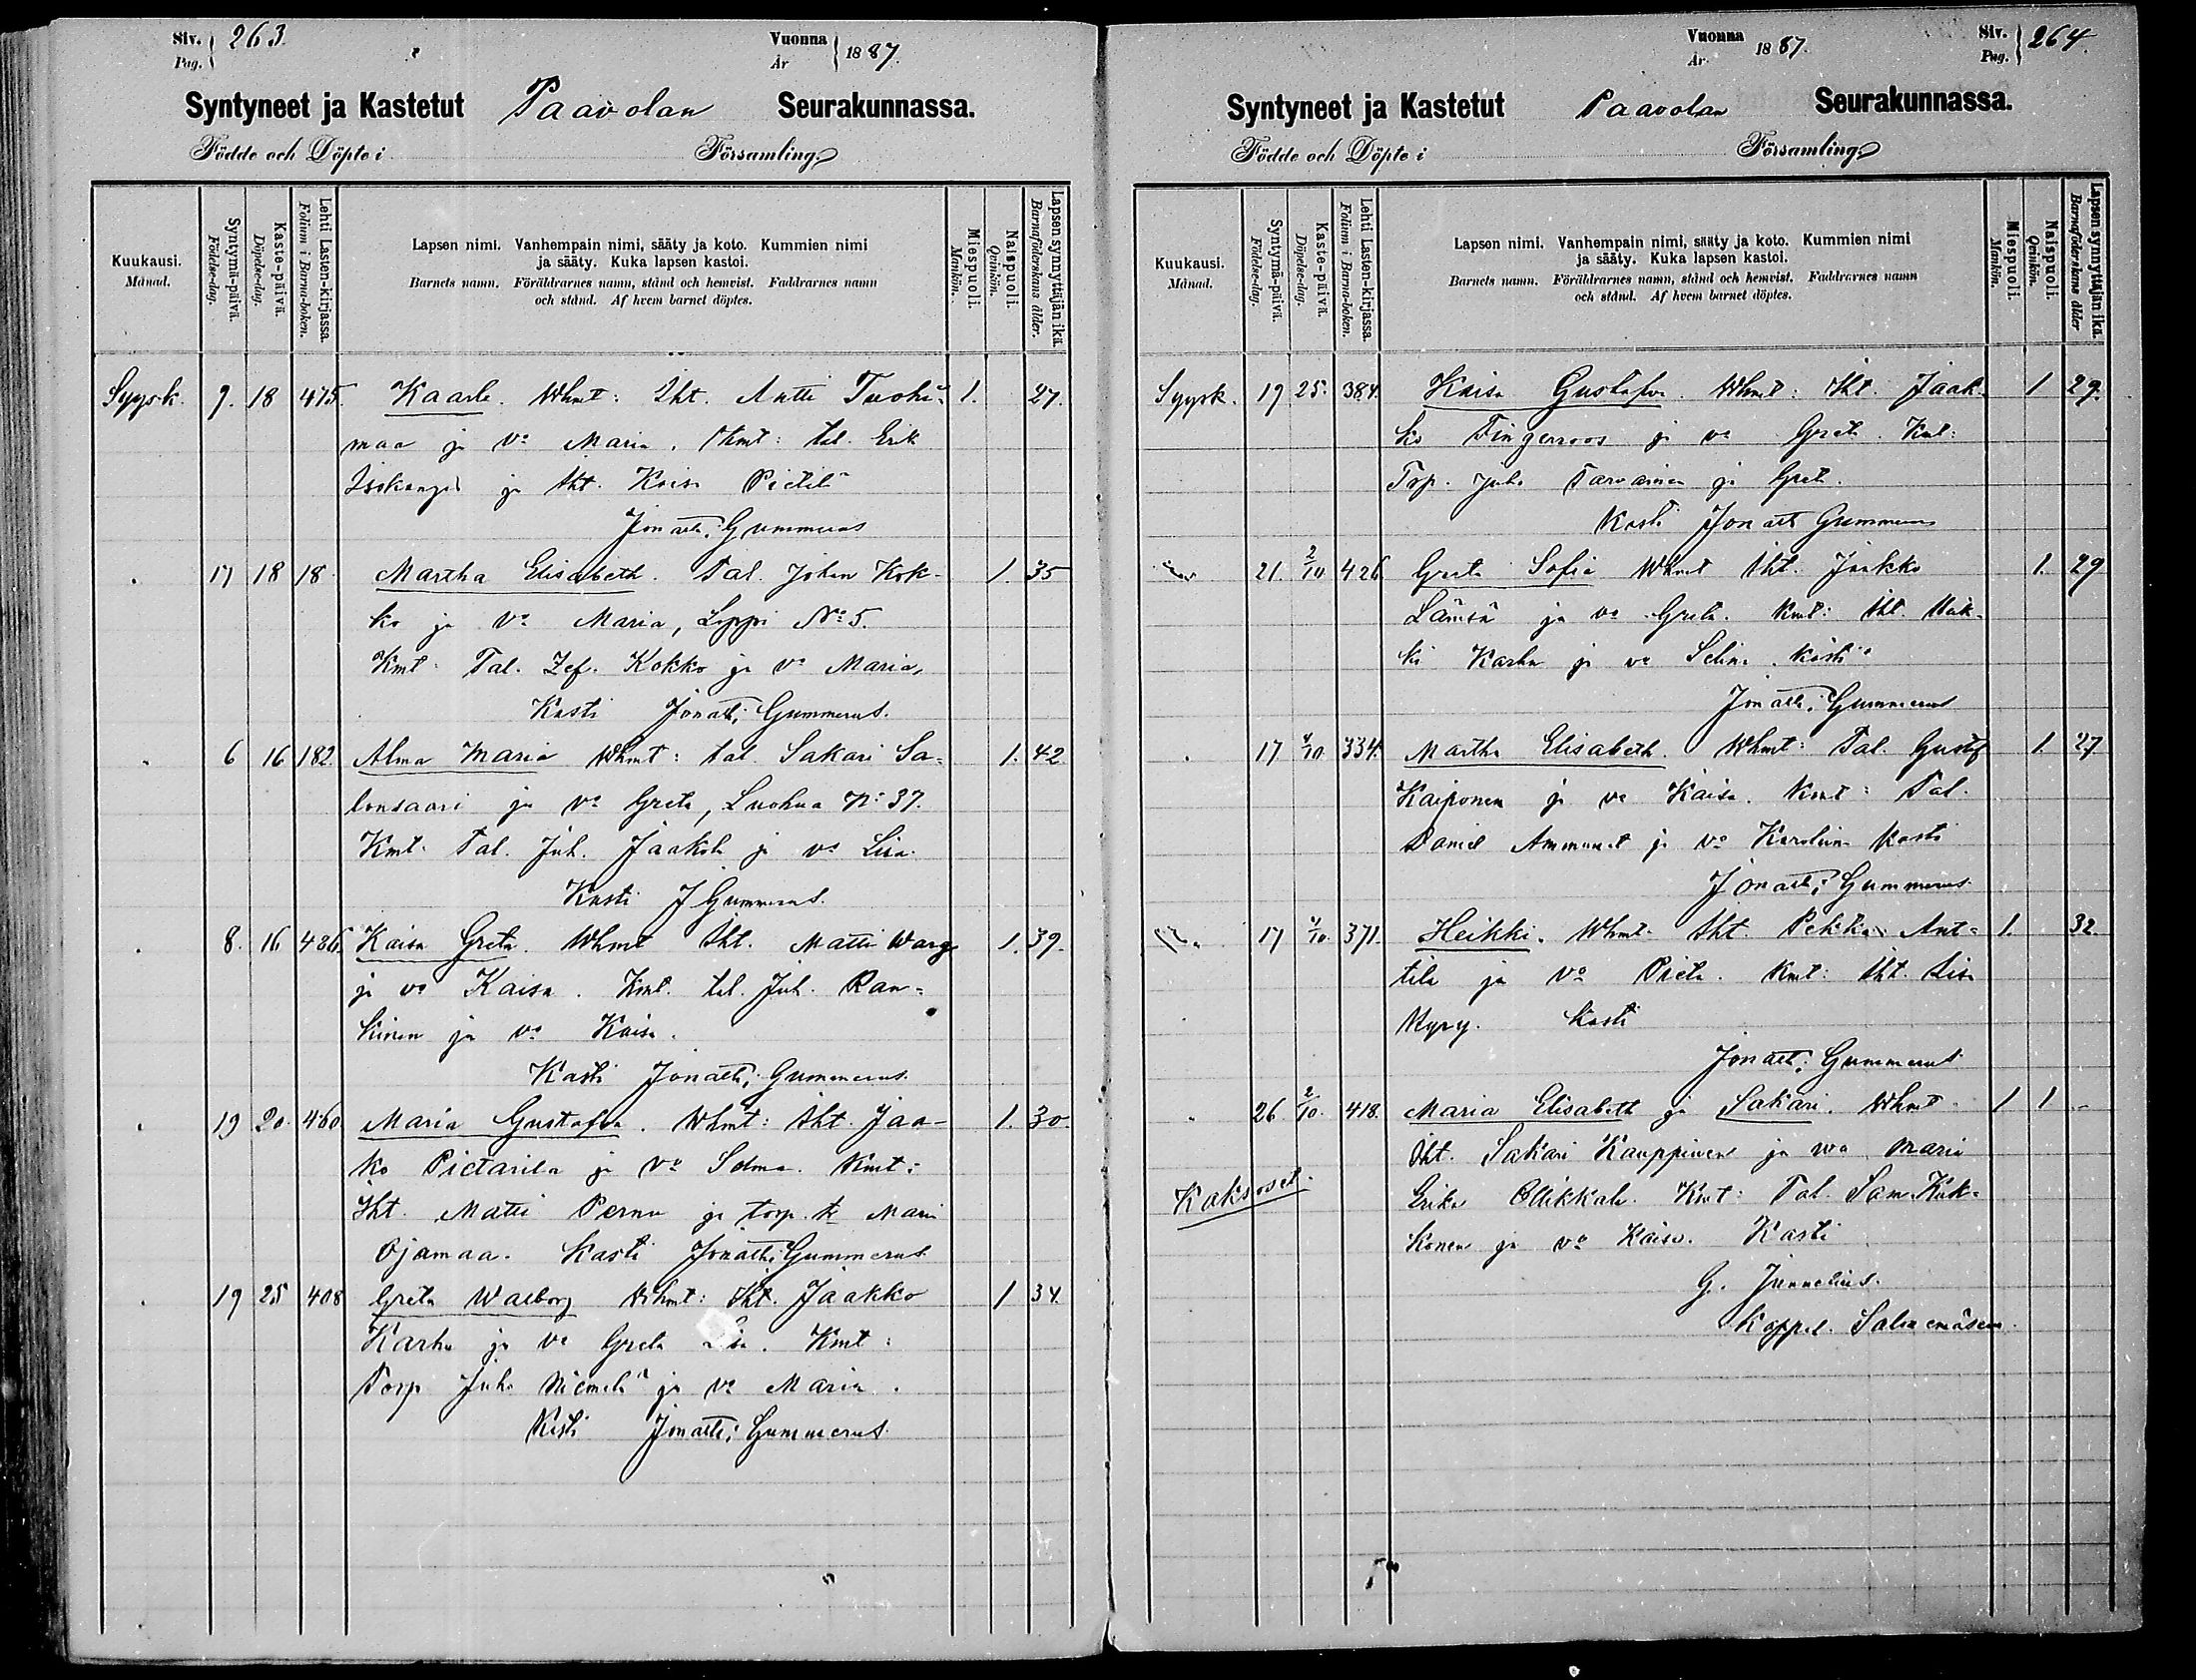 Siv. 263.
Pag.
Vuonna 1887.
År
Syntyneet ja Kastetut Paavolan Seurakunnassa.
Födde och Döpte i Församling
Kuukausi.
Månad.
Syntymä-päivä.
Födelse-dag.
Kaste-päivä.
Döpelse-dag.
Lehti Lasten-kirjassa.
Folium i Barna-boken.
Lapsen nimi. Vanhempain nimi, sääty ja koto. Kummien nimi
ja sääty. Kuka lapsen kastoi.
Barnets namn. Föräldrarnes namn, stånd och hemvist. Faddrarnes namn
och stånd. Af hvem barnet döptes.
Miespuoli.
Mankön.
Naispuoli.
Qvinkön.
Lapsen synnyttäjän ikä.
Barnaföderskans ålder.
Syysk. 7. 18 475. Kaarle. Whmt: Iht. Antti Tuohi- 1. 27.
maa ja vo Maria. Kmt: tal. Erik
ja Iht. Kaisa Pietilä
Jonath: Gummerus
17 18 18 Martha Elisabeth. Tal. Johan Kok- 1. 35
ko ja vo Maria, Lappi No 5.
Kmt: Tal. Zef. Kokko ja vo Maria,
Kasti Jonath: Gummerus.
6 16 182 Alma Maria Whmt: tal. Sakari Sa- 1. 42.
lonsaari ja vo Greta, Luohua No 37.
Kmt. Tal. Juh. Jaakola ja vo Liisa.
Kasti J Gummerus.
8. 16 486. Kaisa Greta. Whmt Iht. Matti Warg 1. 39.
ja vo Kaisa. Kmt. tal. Juh. Ran-
kinen ja vo Kaisa.
Kasti Jonath: Gummerus.
19 20. 460. Maria Gustafva. Whmt: Iht. Jaa- 1. 30.
ko Pietarila ja vo Selma. Kmt:
Iht. Matti Pernu ja torp. tr Maria
Ojamaa. Kasti Jonath: Gummerus.
19 25 408 Greta Walborg Whmt: Iht. Jaakko 1 34.
Karhu ja vo Greta Kmt:
Torp Juho Niemelä ja vo Maria.
Kasti Jonath: Gummerus.
Vuonna 1887.
År
Siv. 264.
Pag.
Syntyneet ja Kastetut Paavolan Seurakunnassa.
Födde och Döpte i Församling
Kuukausi.
Månad.
Syntymä-päivä.
Födelse-dag.
Kaste-päivä.
Döpelse-dag.
Lehti Lasten-kirjassa.
Folium i Barna-boken.
Lapsen nimi. Vanhempain nimi, sääty ja koto. Kummien nimi
ja sääty. Kuka lapsen kastoi.
Barnets namn. Föräldrarnes namn, stånd och hemvist. Faddrarnes namn
och stånd. Af hvem barnet döptes.
Miespuoli.
Mankön.
Naispuoli.
Qvinkön.
Lapsen synnyttäjän ikä.
Barnaföderskans ålder
Syysk. 19 25. 384. Kaisa Gustafva. Whmt: Iht. Jaak- 1 29.
ko Fingerroos ja vo Greta. Kmt:
Torp. Juho Tarvainen ja Greta.
Kasti Jonath Gummerus
21. 2/10 426 Greta Sofia Whmt Iht. Jaakko 1. 29
Lämsä ja vo Greta. Kmt: Iht. Heik-
ki Karhu ja vo Selina. Kasti
Jonath: Gummerus
17. 4/10 334. Martha Elisabeth. Whmt: Tal. Gustaf 1. 27
Kaiponen ja vo Kaisa. Kmt: Tal.
Daniel Ammunet ja vo Karoliina Kasti
Jonath: Gummerus.
17 4/10. 371. Heikki. Whmt. Iht. Pekka Ant- 1. 32.
tila ja vo Pieta. Kmt: Iht. Liisa
Kypy. Kasti
Jonath: Gummerus
26. 2/10. 418. Maria Elisabeth ja Sakari. Whmt. 1 1 -
Iht. Sakari Kauppinen ja wa Maria
Kaksoset.
Erika Ollikkala. Kmt: Tal. Sam. Kak-
konen ja vo Kaisa. Kasti
G. Junnelius.
Kappal.